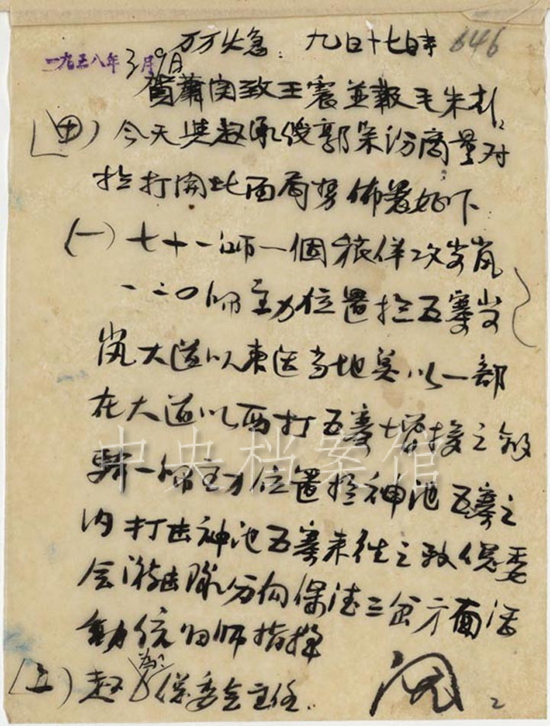 一九三八年3月9日 万万火急 九日十七时 646
贺萧関致王震並報毛朱彭
(四) 今天与赵承绶郭宗汾商量对
於打開北面局势佈置如下
(一) 七十一师一個旅佯攻岢岚
一二〇师主力位置於五寨岢
岚大道以東适当地点以一部
在大道以西打五寨增援之敌
骑一师主力位置於神池五寨之
内打击神池五寨来往之敌保委
会游击隊分向保德三岔方面活
動统归师指挥
(五) 赵为保委会主任.
2
中央档案馆